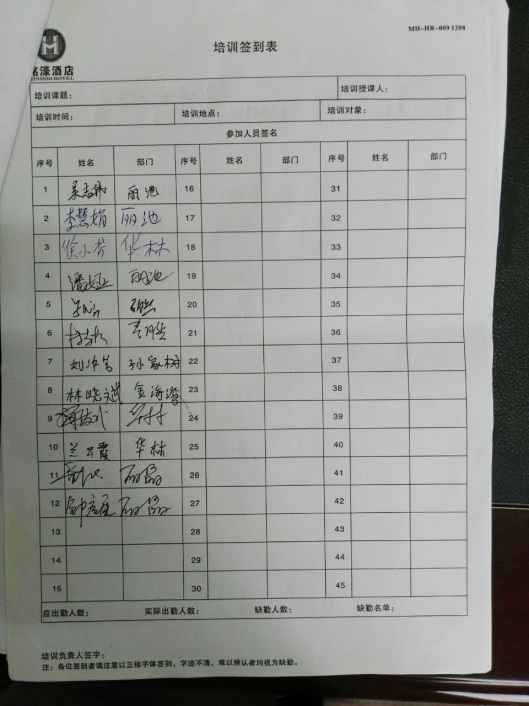 MH-HR-009 1208
铭濠酒店
MINHOO HOTEL
培训签到表
培训课题： 培训授课人：
培训时间： 培训地点： 培训对象：
参加人员签名
序号 姓名 部门 序号 姓名 部门 序号 姓名 部门
1 丽池 16 31
2 李慧娟 丽池 17 32
3 徐小芳 华林 18 33
4 丽池 19 34
5 20 35
6 21 36
7 孙家村 22 37
8 林晓斌 金海湾 23 38
9 24 39
10 兰云霞 华林 25 40
11 丽晶 26 41
12 丽晶 27 42
13 28 43
14 29 44
15 30 45
应出勤人数： 实际出勤人数： 缺勤人数： 缺勤名单：
培训负责人签字：
注：各位签到者请注意以正楷字体签到，字迹不清，难以辨认者均视为缺勤。